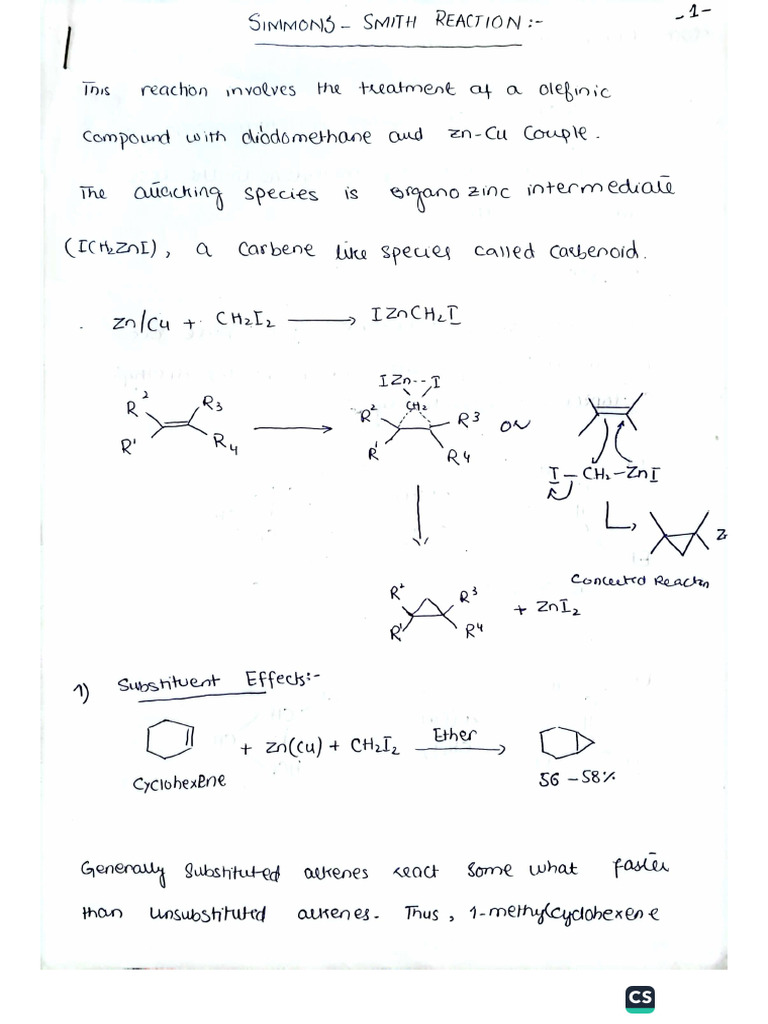 -1-
SIMMONS - SMITH REACTION :-
This reaction involves the treatment of a olefinic
compound with diiodomethane and Zn-Cu couple.
The attacking species is organo zinc intermediate
(ICH2ZnI), a carbene like species called carbenoid.
Zn/Cu + CH2I2 ⟶ IZnCH2I
IZn--I
R2 R3 CH2
R1 R4 R2 R3 or
R1 R4 I-CH2-ZnI
Z
Concerted Reaction
R2 R3 + ZnI2
R1 R4
1) Substituent Effects:-
+ Zn(Cu) + CH2I2 Ether ⟶
Cyclohexene 56 - 58%
Generally substituted alkenes react some what faster
than unsubstituted alkenes. Thus, 1-methylcyclohexene
CS